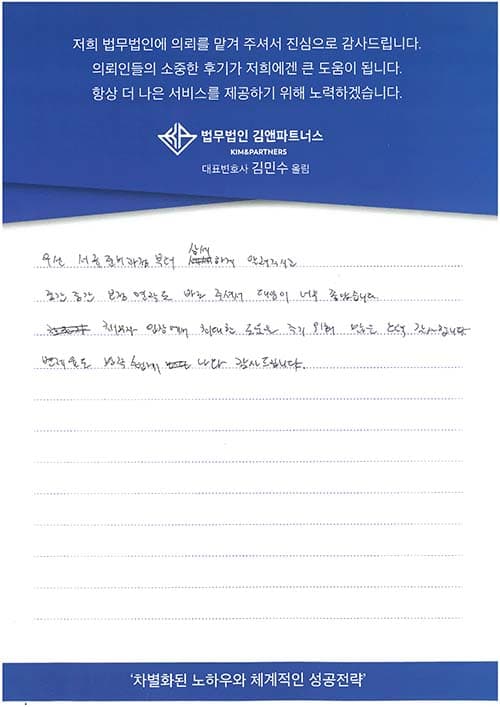 저희 법무법인에 의뢰를 맡겨 주셔서 진심으로 감사드립니다.
의뢰인들의 소중한 후기가 저희에겐 큰 도움이 됩니다.
항상 더 나은 서비스를 제공하기 위해 노력하겠습니다.
법무법인 김앤파트너스
KIM&PARTNERS
대표변호사 김민수 올림
우선 서류 준비과정부터 상세하게 알려주시고
중간 중간 보정 연락도 바로 주셔서 대응이 너무 좋았습니다.
채무자 입장에서 최대한 도움을 주기 위해 감사합니다
변제율도 나와 감사드립니다.
'차별화된 노하우와 체계적인 성공전략'